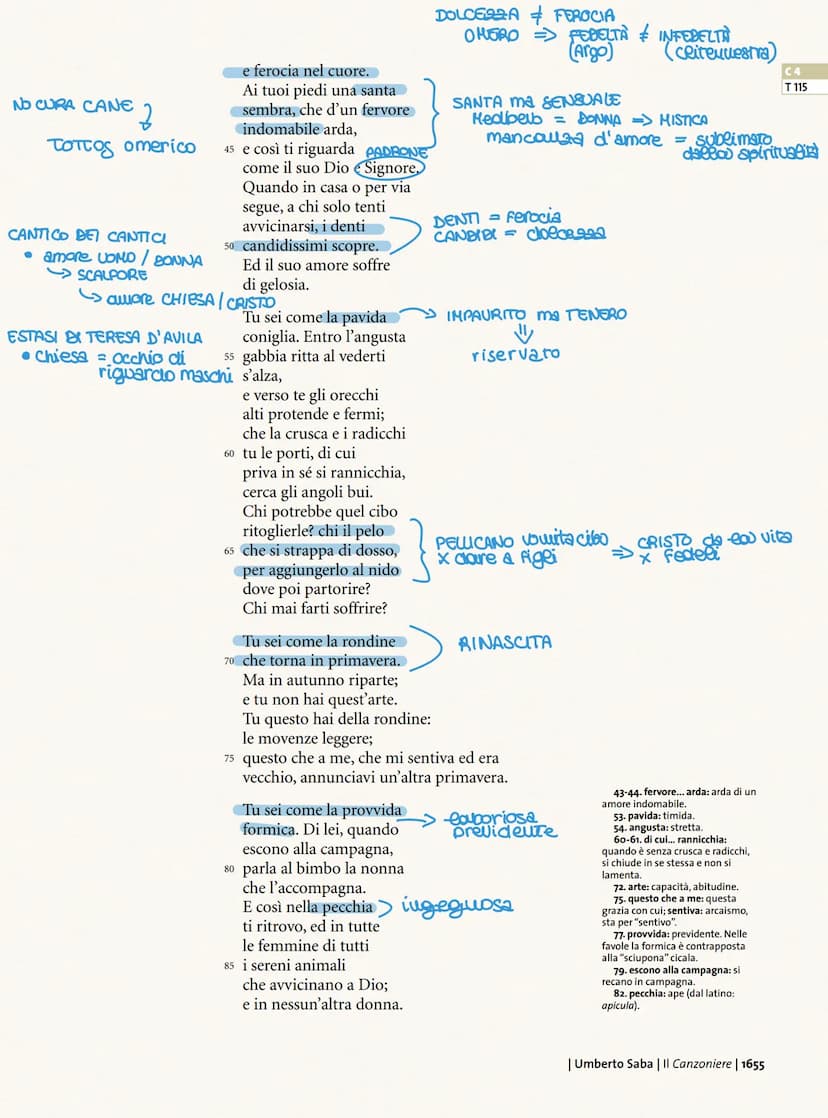 DOLCEZZA ≠ FEROCIA
OMERO => FEDELTÀ ≠ INFEDELTÀ
(Argo) (Clitennestra)
C 4
T 115
e ferocia nel cuore.
Ai tuoi piedi una santa
sembra, che d'un fervore
indomabile arda,
45 e così ti riguarda PADRONE
come il suo Dio e Signore.
Quando in casa o per via
segue, a chi solo tenti
avvicinarsi, i denti
50 candidissimi scopre.
Ed il suo amore soffre
di gelosia.
NO CURA CANE
TOPOS omerico
SANTA ma SENSUALE
Medioevo = DONNA => MISTICA
mancanza d'amore = sublimato
dalla spiritualità
DENTI = Ferocia
CANDIDI = dolcezza
CANTICO DEI CANTICI
• amore UOMO / DONNA
↳ SCALPORE
↳ amore CHIESA / CRISTO
ESTASI DI TERESA D'AVILA
• chiesa = occhio di
riguardo maschi
Tu sei come la pavida
coniglia. Entro l'angusta
55 gabbia ritta al vederti
s'alza,
e verso te gli orecchi
alti protende e fermi;
che la crusca e i radicchi
60 tu le porti, di cui
priva in sé si rannicchia,
cerca gli angoli bui.
Chi potrebbe quel cibo
ritoglierle? chi il pelo
65 che si strappa di dosso,
per aggiungerlo al nido
dove poi partorire?
Chi mai farti soffrire?
IMPAURITO ma TENERO
riservato
PELLICANO vomita cibo => CRISTO da la vita
x dare a figli x Fedeli
Tu sei come la rondine
70 che torna in primavera.
Ma in autunno riparte;
e tu non hai quest'arte.
Tu questo hai della rondine:
le movenze leggere;
75 questo che a me, che mi sentiva ed era
vecchio, annunciavi un'altra primavera.
RINASCITA
Tu sei come la provvida
formica. Di lei, quando
escono alla campagna,
80 parla al bimbo la nonna
che l'accompagna.
E così nella pecchia
ti ritrovo, ed in tutte
le femmine di tutti
85 i sereni animali
che avvicinano a Dio;
e in nessun'altra donna.
laboriosa
previdente
ingegnosa
43-44. fervore... arda: arda di un
amore indomabile.
53. pavida: timida.
54. angusta: stretta.
60-61. di cui... rannicchia:
quando è senza crusca e radicchi,
si chiude in se stessa e non si
lamenta.
72. arte: capacità, abitudine.
75. questo che a me: questa
grazia con cui; sentiva: arcaismo,
sta per "sentivo".
77. provvida: previdente. Nelle
favole la formica è contrapposta
alla "sciupona" cicala.
79. escono alla campagna: si
recano in campagna.
82. pecchia: ape (dal latino:
apicula).
| Umberto Saba | Il Canzoniere | 1655